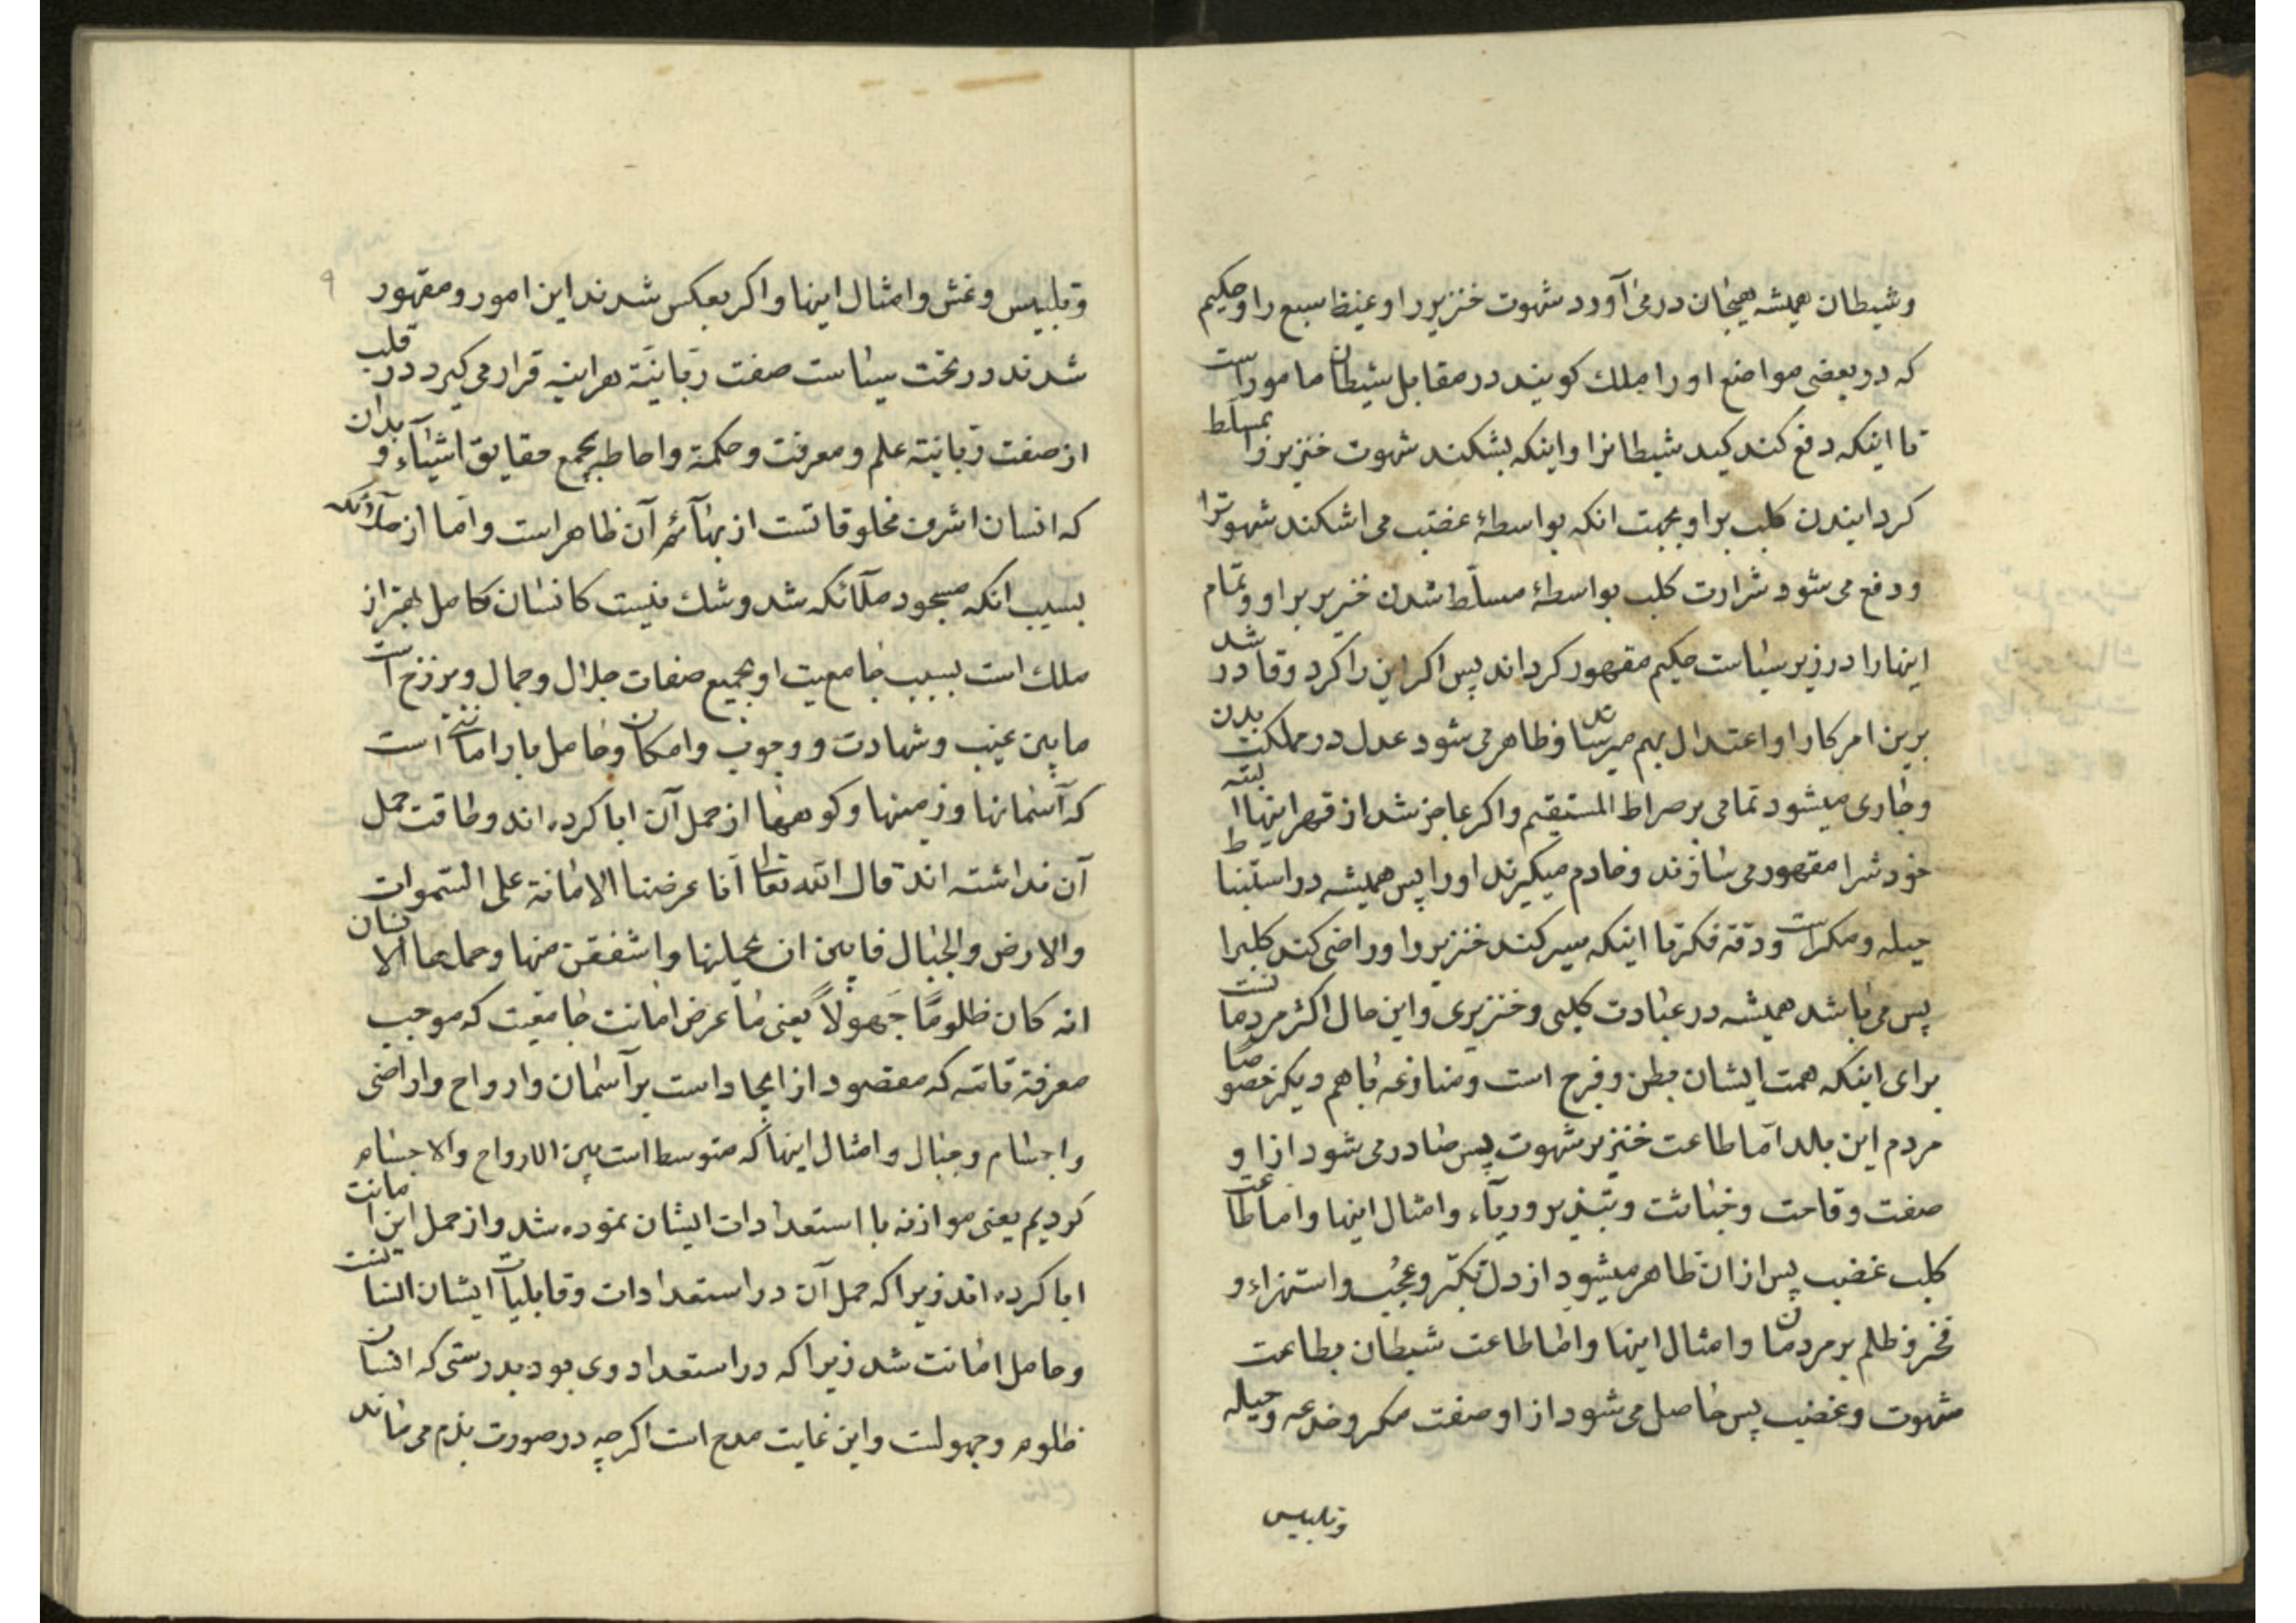 وشیطان همیشه هیجان در می آورد شهوت خنزیر را وغیظ سبع را وحکیم
که در بعضی مواضع او را ملك کویند در مقابل شیطان مامور است
تا اینکه دفع کند کید شیطانرا واینکه بشکند شهوت خنزیر را بمسلط
کردانیدن کلب بر او بجهت انکه بواسطۀ غضب می اشکند شهوترا
ودفع می شود شرارت کلب بواسطۀ مسلّط شدن خنزیر بر او وتمام
اینها را در زیر سیاست حکیم مقهور کرداند پس اکر این را کرد وقادر شد
برین امر کار او اعتدال بهم میرساند وظاهر می شود عدل در مملکت بدن
وجاری میشود تمامی بر صراط المستقیم واکر عاجز شد از قهر اینها البته
خودشرا مقهور می سازند وخادم میکیرند او را پس همیشه در استنباط
حیله ومکر است ودقة فکر تا اینکه سیر کند خنزیر را وراضی کند کلبرا
پس می باشد همیشه در عبادت کلبی وخنزیری واین حال اکثر مردمانست
برای اینکه همت ایشان بطن وفرج است ومنازعه باهم دیکر خصوصًا
مردم این بلد امّا طاعت خنزیر شهوت پس صادر می شود از او
صفت وقاحت وخباثت وتبذیر وریآء وامثال اینها واما طاعت
کلب غضب پس از ان ظاهر میشود از دل تکبّر وعجُب واستهزاء و
فخر وظلم بر مردمان وامثال اینها واما طاعت شیطان بطاعت
شهوت وغضب پس حاصل می شود از او صفت مکر وخدعه وحیله
وتلبیس
۹
وتلبیس وغش وامثال اینها واکر بعکس شدند این امور ومقهور
شدند در تحت سیاست صفت ربّانیّة هراینه قرار می کیرد در قلب
از صفت ربّانیّة علم ومعرفت وحکمة واحاطه بجمیع حقایق اشیآء وبدان
که انسان اشرف مخلوقاتست از بهآئم آن ظاهر است وامّا از ملآئکه
بسبب انکه مسجود ملآئکه شد وشك نیست کانسان کامل بهتر از
ملك است بسبب جامعیت او بجمیع صفات جلال وجمال وبرزخ است
مابین غیب وشهادت ووجوب وامکان وحامل بار امانتی است
که آسمانها وزمینها وکوهها از حمل آن ابا کرده اند وطاقت حمل
آن نداشته اند قال الله تعالی انّا عرضنا الامانة علی السّموات
والارض والجبال فابین ان یحملنها واشفقن منها وحملها الانسان
انه کان ظلومًا جَهولًا یعنی ما عرض امانت جامعیت که موجب
معرفة تامّه که مقصود از ایجاد است بر آسمان وارواح واراضی
واجسام وجبال وامثال اینها که متوسط است بین الارواح والاجسام
کردیم یعنی موازنه با استعدادات ایشان نموده شد واز حمل این امانت
ابا کرده اند زیرا که حمل آن در استعدادات وقابلیات ایشان نیست
وحامل امانت شد زیرا که در استعداد وی بود بدرستی که انسان
ظلوم وجهولست واین غایت مدح است اکرچه در صورت بذم می ماند